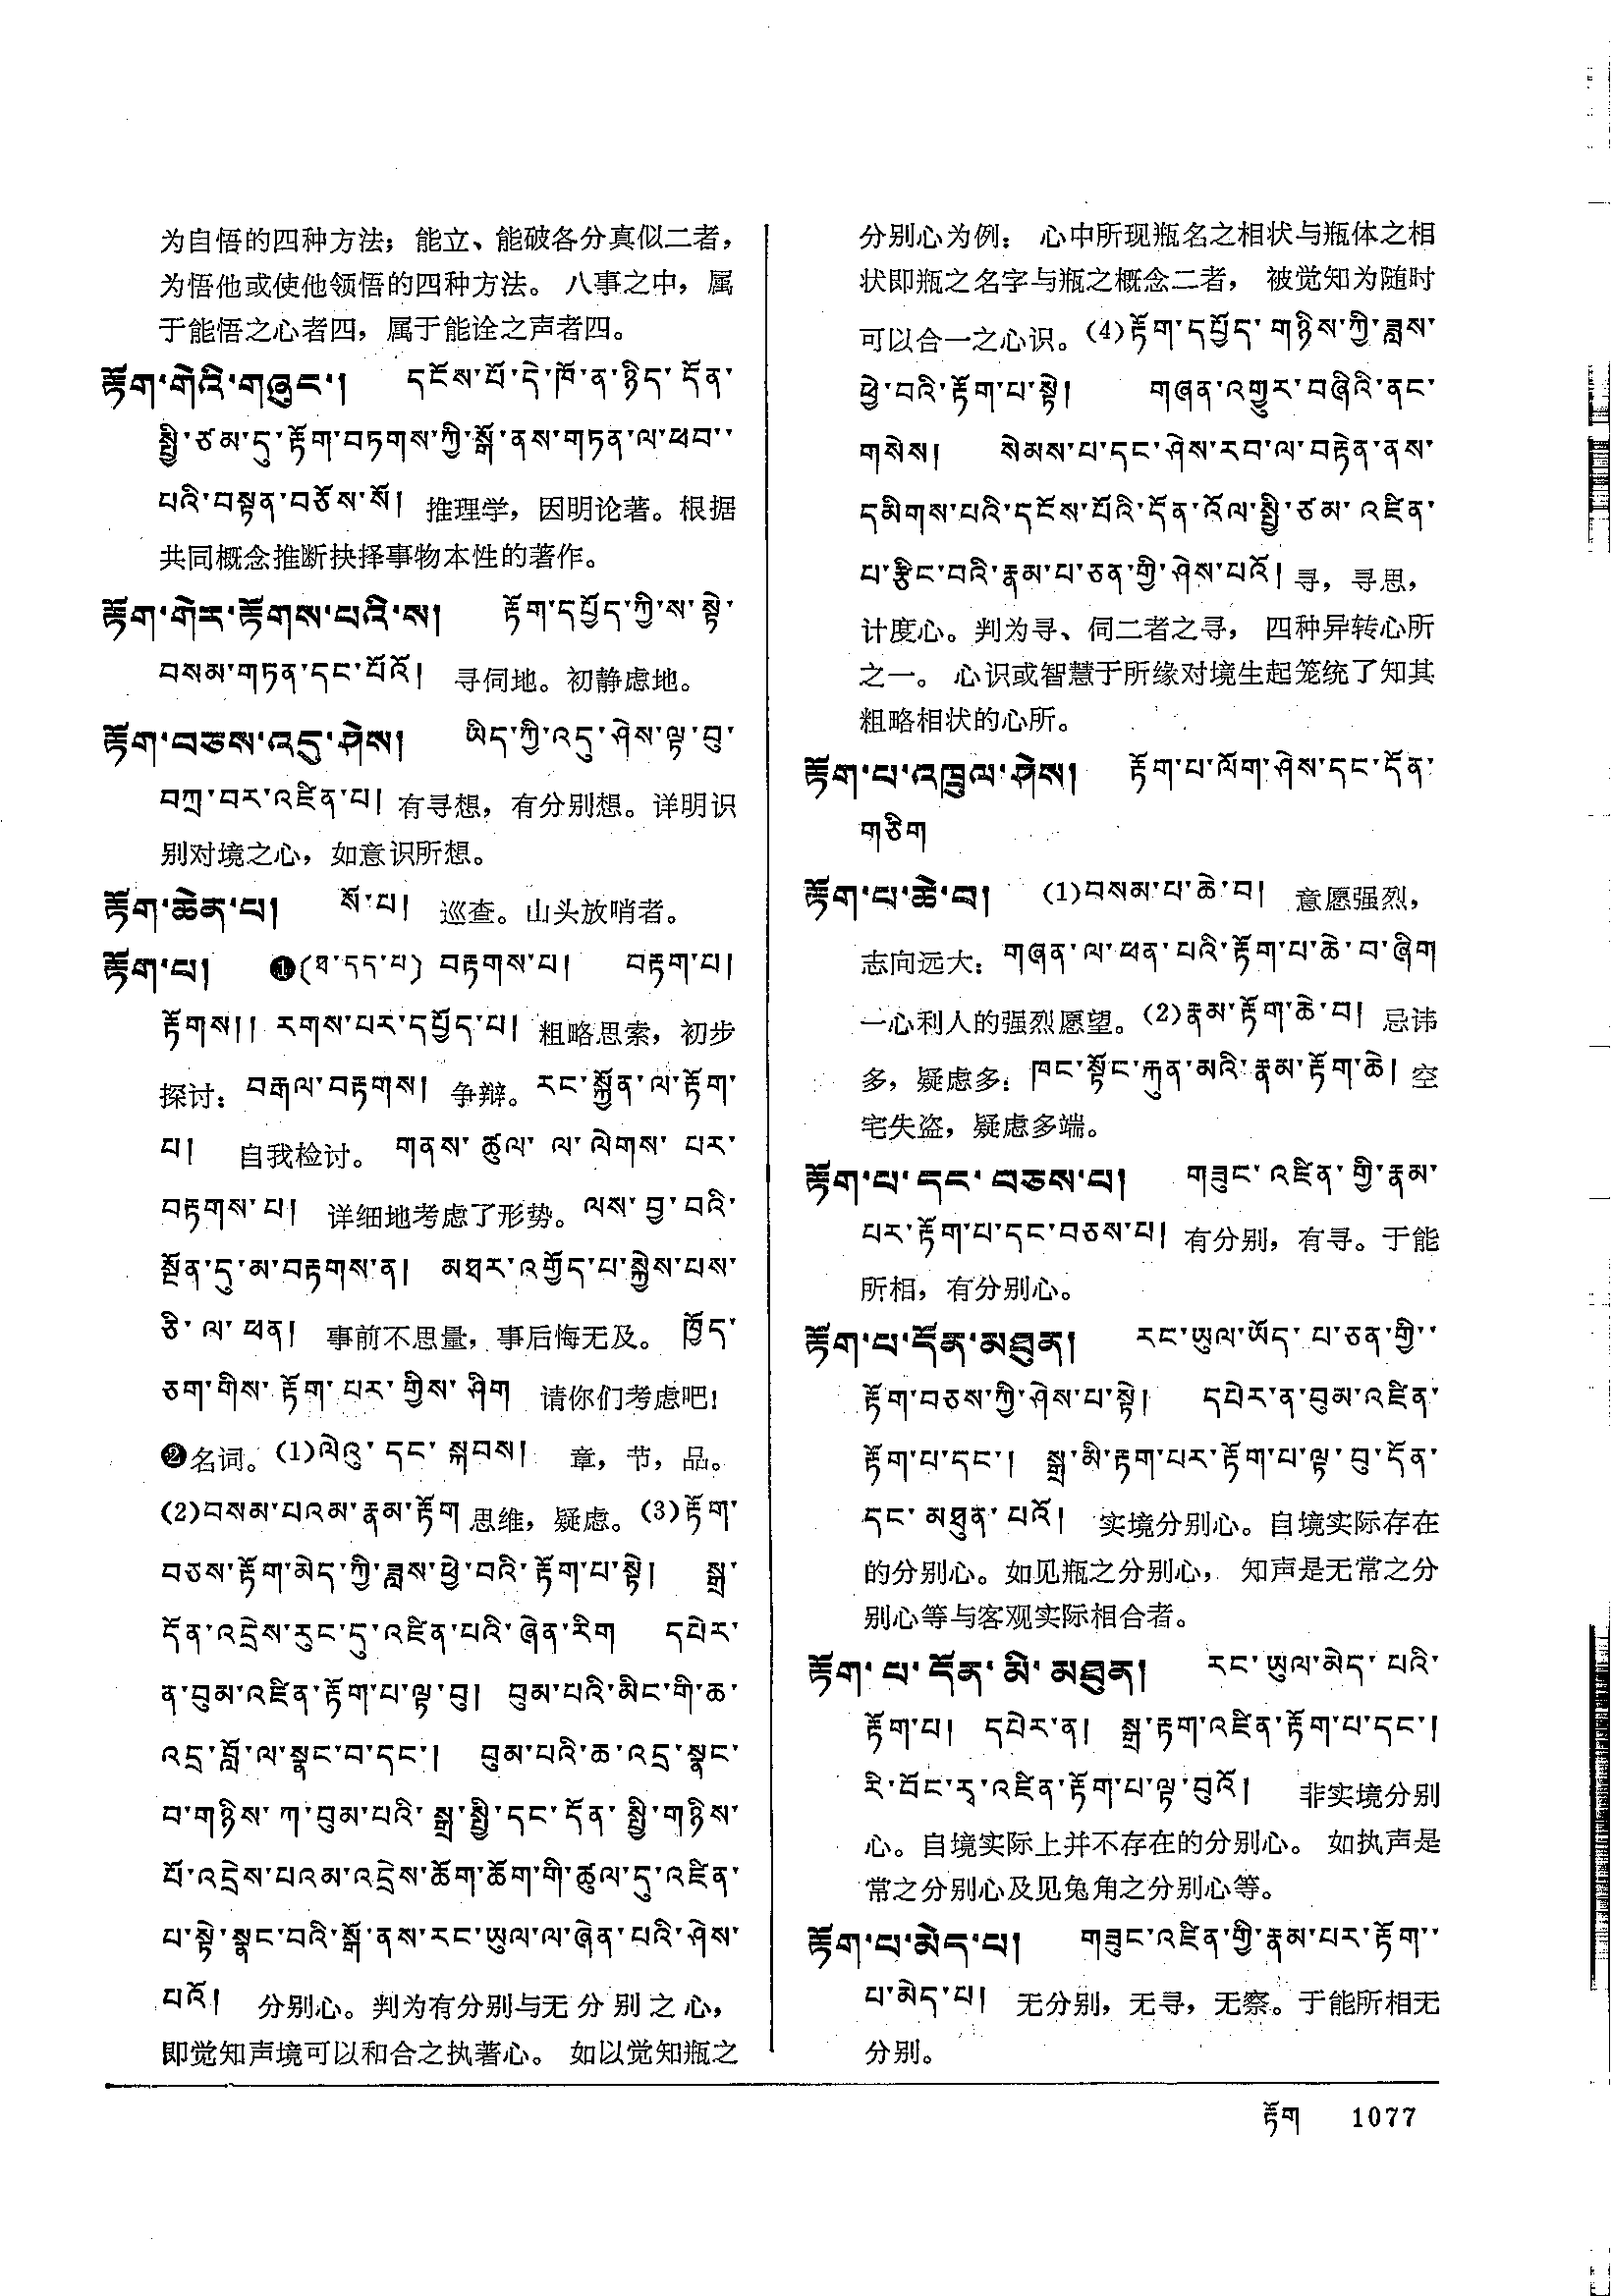 为自悟的四种方法；能立、能破各分真似二者，
为悟他或使他领悟的四种方法。八事之中，属
于能悟之心者四，属于能诠之声者四。
རྟོག་གེའི་གཞུང་། དངོས་པོ་དེ་ཁོ་ན་ཉིད་དོན་
སྤྱི་ཙམ་དུ་རྟོག་བཏགས་ཀྱི་སྒོ་ནས་གཏན་ལ་ཕབ་་
པའི་བསྟན་བཅོས་སོ། 推理学，因明论著。根据
共同概念推断抉择事物本性的著作。
རྟོག་གེར་རྟོགས་པའི་ས། རྟོག་དཔྱོད་ཀྱི་ས་སྟེ་
བསམ་གཏན་དང་པོའོ། 寻伺地。初静虑地。
རྟོག་བཅས་འདུ་ཤེས། ཡིད་ཀྱི་འདུ་ཤེས་ལྟ་བུ་
བཀྲ་བར་འཛིན་པ། 有寻想，有分别想。详明识
别对境之心，如意识所想。
རྟོག་ཆེན་པ། སོ་པ། 巡查。山头放哨者。
རྟོག་པ། ❶(ཐ་དད་པ) བརྟགས་པ། བརྟག་པ།
རྟོགས།། རགས་པར་དཔྱོད་པ། 粗略思索，初步
探讨：བརྒལ་བརྟགས། 争辩。རང་སྐྱོན་ལ་རྟོག་
པ། 自我检讨。གནས་ཚུལ་ལ་ལེགས་པར་
བརྟགས་པ། 详细地考虑了形势。ལས་བྱ་བའི་
སྔོན་དུ་མ་བརྟགས་ན། མཐར་འགྱོད་པ་སྐྱེས་པས་
ཅི་ལ་ཕན། 事前不思量，事后悔无及。ཁྱོད་
ཅག་གིས་རྟོག་པར་གྱིས་ཤིག 请你们考虑吧！
❷名词。(1)ལེའུ་དང་སྐབས། 章，节，品。
(2)བསམ་པའམ་རྣམ་རྟོག 思维，疑虑。(3)རྟོག་
བཅས་རྟོག་མེད་ཀྱི་ཟླས་ཕྱེ་བའི་རྟོག་པ་སྟེ། སྒྲ་
དོན་འདྲེས་རུང་དུ་འཛིན་པའི་ཞེན་རིག དཔེར་
ན་བུམ་འཛིན་རྟོག་པ་ལྟ་བུ། བུམ་པའི་མིང་གི་ཆ་
འདྲ་བློ་ལ་སྣང་བ་དང་། བུམ་པའི་ཆ་འདྲ་སྣང་
བ་གཉིས་ཀ་བུམ་པའི་སྒྲ་སྤྱི་དང་དོན་སྤྱི་གཉིས་
པོ་འདྲེས་པའམ་འདྲེས་ཆོག་ཆོག་གི་ཚུལ་དུ་འཛིན་
པ་སྟེ་སྣང་བའི་སྒོ་ནས་རང་ཡུལ་ལ་ཞེན་པའི་ཤེས་
པའོ། 分别心。判为有分别与无分别之心，
即觉知声境可以和合之执著心。如以觉知瓶之
分别心为例：心中所现瓶名之相状与瓶体之相
状即瓶之名字与瓶之概念二者，被觉知为随时
可以合一之心识。(4)རྟོག་དཔྱོད་གཉིས་ཀྱི་ཟླས་
ཕྱེ་བའི་རྟོག་པ་སྟེ། གཞན་འགྱུར་བཞིའི་ནང་
གསེས། སེམས་པ་དང་ཤེས་རབ་ལ་བརྟེན་ནས་
དམིགས་པའི་དངོས་པོའི་དོན་འོལ་སྤྱི་ཙམ་འཛིན་
པ་རྩིང་བའི་རྣམ་པ་ཅན་གྱི་ཤེས་པའོ། 寻，寻思，
计度心。判为寻、伺二者之寻，四种异转心所
之一。心识或智慧于所缘对境生起笼统了知其
粗略相状的心所。
རྟོག་པ་འཁྲུལ་ཤེས། རྟོག་པ་ལོག་ཤེས་དང་དོན་
གཅིག
རྟོག་པ་ཆེ་བ། (1)བསམ་པ་ཆེ་བ། 意愿强烈，
志向远大：གཞན་ལ་ཕན་པའི་རྟོག་པ་ཆེ་བ་ཞིག
一心利人的强烈愿望。(2)རྣམ་རྟོག་ཆེ་བ། 忌讳
多，疑虑多：ཁང་སྟོང་རྐུན་མའི་རྣམ་རྟོག་ཆེ། 空
宅失盗，疑虑多端。
རྟོག་པ་དང་བཅས་པ། གཟུང་འཛིན་གྱི་རྣམ་
པར་རྟོག་པ་དང་བཅས་པ། 有分别，有寻。于能
所相，有分别心。
རྟོག་པ་དོན་མཐུན། རང་ཡུལ་ཡོད་པ་ཅན་གྱི་་
རྟོག་བཅས་ཀྱི་ཤེས་པ་སྟེ། དཔེར་ན་བུམ་འཛིན་
རྟོག་པ་དང་། སྒྲ་མི་རྟག་པར་རྟོག་པ་ལྟ་བུ་དོན་
དང་མཐུན་པའོ། 实境分别心。自境实际存在
的分别心。如见瓶之分别心，知声是无常之分
别心等与客观实际相合者。
རྟོག་པ་དོན་མི་མཐུན། རང་ཡུལ་མེད་པའི་
རྟོག་པ། དཔེར་ན། སྒྲ་རྟག་འཛིན་རྟོག་པ་དང་།
རི་བོང་རྭ་འཛིན་རྟོག་པ་ལྟ་བུའོ། 非实境分别
心。自境实际上并不存在的分别心。如执声是
常之分别心及见兔角之分别心等。
རྟོག་པ་མེད་པ། གཟུང་འཛིན་གྱི་རྣམ་པར་རྟོག་་
པ་མེད་པ། 无分别，无寻，无察。于能所相无
分别。
རྟོག 1077